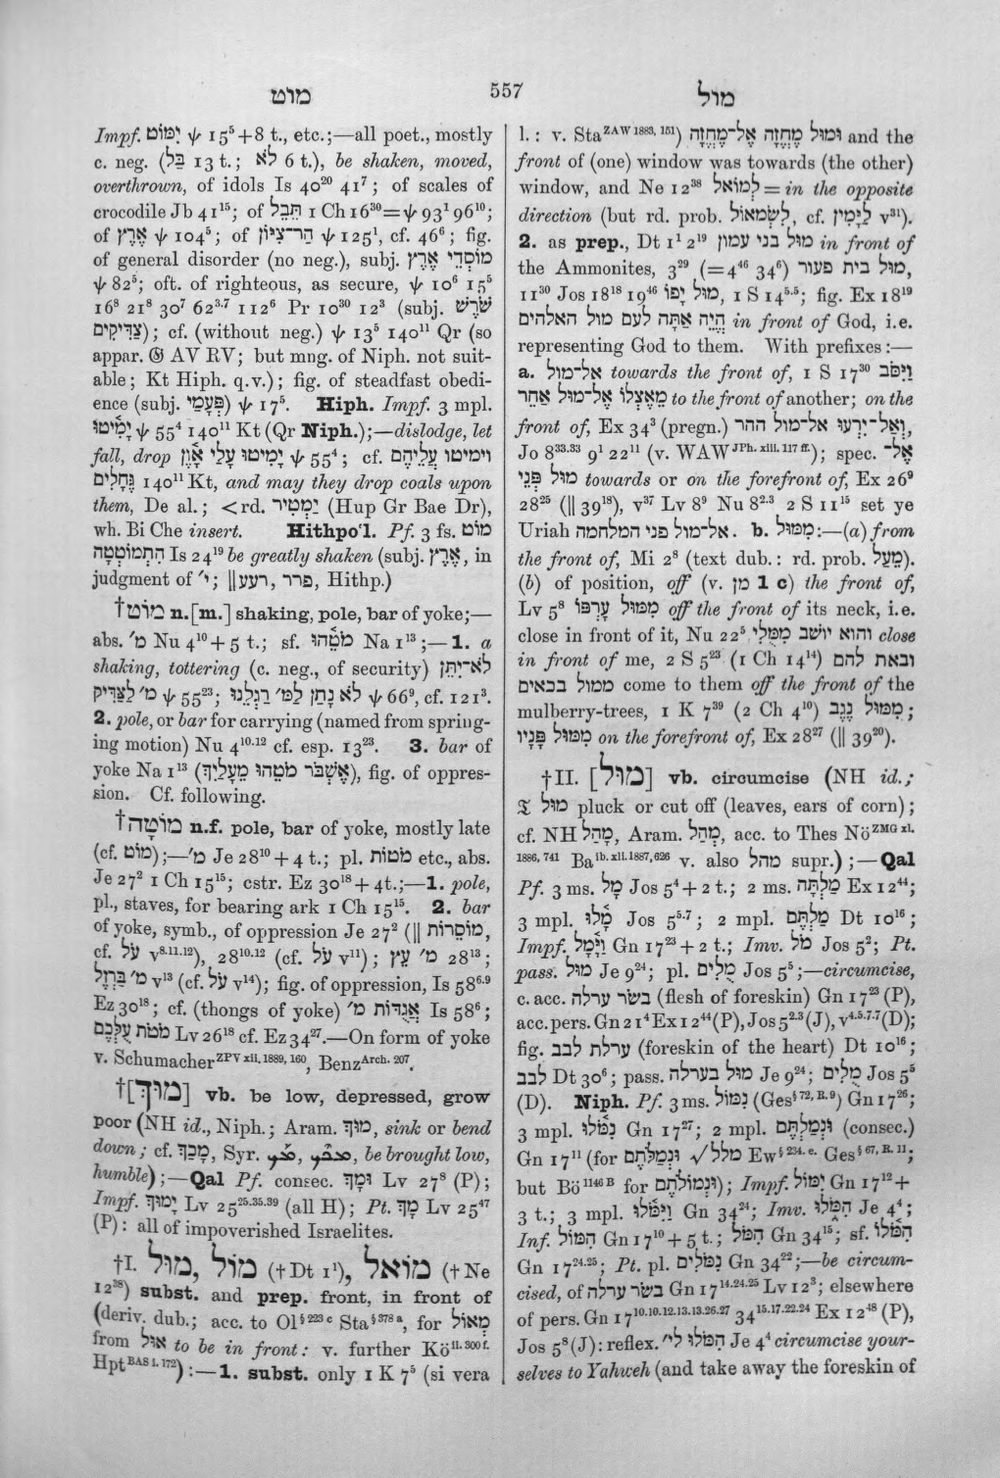 מוט
557
מול
Impf. יִמּוֹט ψ 15⁵+8 t., etc.;—all poet., mostly
c. neg. (בַּל 13 t.; לֹא 6 t.), be shaken, moved,
overthrown, of idols Is 40²⁰ 41⁷; of scales of
crocodile Jb 41¹⁵; of תֵּבֵל 1 Ch 16³⁰=ψ 93¹ 96¹⁰;
of אֶרֶץ ψ 104⁵; of הַר־צִיּוֹן ψ 125¹, cf. 46⁶; fig.
of general disorder (no neg.), subj. מוֹסְדֵי אֶרֶץ
ψ 82⁵; oft. of righteous, as secure, ψ 10⁶ 15⁵
16⁸ 21⁸ 30⁷ 62³·⁷ 112⁶ Pr 10³⁰ 12³ (subj. שֹׁרֶשׁ
צַדִּיקִים); cf. (without neg.) ψ 13⁵ 140¹¹ Qr (so
appar. 𝔊 AV RV; but mng. of Niph. not suit-
able; Kt Hiph. q.v.); fig. of steadfast obedi-
ence (subj. פְּעָמַי) ψ 17⁵. Hiph. Impf. 3 mpl.
יָמִיטוּ ψ 55⁴ 140¹¹ Kt (Qr Niph.);—dislodge, let
fall, drop יָמִיטוּ עָלַי אָוֶן ψ 55⁴; cf. וימיטו עֲלֵיהֶם
גֶּחָלִים 140¹¹ Kt, and may they drop coals upon
them, De al.; <rd. יַמְטֵיר (Hup Gr Bae Dr),
wh. Bi Che insert. Hithpoʻl. Pf. 3 fs. מוֹט
הִתְמוֹטְטָה Is 24¹⁹ be greatly shaken (subj. אֶרֶץ, in
judgment of ׳י; ‖רעע, פרר, Hithp.)
†מוֹט n.[m.] shaking, pole, bar of yoke;—
abs. מ׳ Nu 4¹⁰+5 t.; sf. מֹטֵהוּ Na 1¹³;—1. a
shaking, tottering (c. neg., of security) לֹא־יִתֵּן
מ׳ לַצַּדִּיק ψ 55²³; לֹא נָתַן לַמּ׳ רַגְלֵנוּ ψ 66⁹, cf. 121³.
2. pole, or bar for carrying (named from spring-
ing motion) Nu 4¹⁰·¹² cf. esp. 13²³. 3. bar of
yoke Na 1¹³ (אֶשְׁבֹּר מֹטֵהוּ מֵעָלַיִךְ), fig. of oppres-
sion. Cf. following.
†מוֹטָה n.f. pole, bar of yoke, mostly late
(cf. מוֹט);—מ׳ Je 28¹⁰+4 t.; pl. מֹטוֹת etc., abs.
Je 27² 1 Ch 15¹⁵; cstr. Ez 30¹⁸+4t.;—1. pole,
pl., staves, for bearing ark 1 Ch 15¹⁵. 2. bar
of yoke, symb., of oppression Je 27² (‖ מוֹסֵרוֹת,
cf. עֹל v⁸·¹¹·¹²), 28¹⁰·¹² (cf. עֹל v¹¹); מ׳ עֵץ 28¹³;
מ׳ בַּרְזֶל v¹³ (cf. עֹל v¹⁴); fig. of oppression, Is 58⁶·⁹
Ez 30¹⁸; cf. (thongs of yoke) אֲגֻדּוֹת מ׳ Is 58⁶;
מֹטֹת עֻלְּכֶם Lv 26¹³ cf. Ez 34²⁷.—On form of yoke
v. Schumacher ZPV xii. 1889, 160, Benz Arch. 207.
†[מוּךְ] vb. be low, depressed, grow
poor (NH id., Niph.; Aram. מוּךְ, sink or bend
down; cf. מָכַךְ, Syr. be brought low,
humble);—Qal Pf. consec. וּמָךְ Lv 27⁸ (P);
Impf. יָמוּךְ Lv 25²⁵·³⁵·³⁹ (all H); Pt. מָךְ Lv 25⁴⁷
(P): all of impoverished Israelites.
†I. מוּל, מוֹל (†Dt 1¹), מוֹאל (†Ne
12³⁸) subst. and prep. front, in front of
(deriv. dub.; acc. to Ol §223c Sta §378a, for מָאוֹל
from אוּל to be in front: v. further Kö ii. 300 f.
Hpt BAS i. 172):—1. subst. only 1 K 7⁵ (si vera
l.: v. Sta ZAW 1883, 151) וּמוּל מֶחֱזָה אֶל־מֶחֱזָה and the
front of (one) window was towards (the other)
window, and Ne 12³⁸ לְמוֹאל=in the opposite
direction (but rd. prob. לִשְׂמֹאול, cf. לַיָּמִין v³¹).
2. as prep., Dt 1¹ 2¹⁹ מוּל בני עמון in front of
the Ammonites, 3²⁹ (=4⁴⁶ 34⁶) מוּל בית פעור,
11³⁰ Jos 18¹⁸ 19⁴⁶ מוּל יָפוֹ, 1 S 14⁵·⁵; fig. Ex 18¹⁹
הֱיֵה אַתָּה לעם מול האלהים in front of God, i.e.
representing God to them. With prefixes:—
a. אל־מוּל towards the front of, 1 S 17³⁰ וַיִּסֹּב
מֵאֶצְלוֹ אֶל־מוּל אַחֵר to the front of another; on the
front of, Ex 34³ (pregn.) וְאַל־יִרְעוּ אל־מול ההר,
Jo 8³³·³³ 9¹ 22¹¹ (v. WAW JPh. xiii. 117 ff.); spec. אֶל־
מוּל פְּנֵי towards or on the forefront of, Ex 26⁹
28²⁵ (‖39¹⁸), v³⁷ Lv 8⁹ Nu 8²·³ 2 S 11¹⁵ set ye
Uriah אל־מול פני המלחמה. b. מִמּוּל:—(a) from
the front of, Mi 2⁸ (text dub.: rd. prob. מֵעַל).
(b) of position, off (v. מן 1 c) the front of,
Lv 5⁸ מִמּוּל עָרְפּוֹ off the front of its neck, i.e.
close in front of it, Nu 22⁵ והוא יושב מִמֻּלִי close
in front of me, 2 S 5²³ (1 Ch 14¹⁴) ובאת להם
ממול בכאים come to them off the front of the
mulberry-trees, 1 K 7³⁹ (2 Ch 4¹⁰) מִמּוּל נֶגֶב;
מִמּוּל פָּנָיו on the forefront of, Ex 28²⁷ (‖ 39²⁰).
†II. [מוּל] vb. circumcise (NH id.;
𝔗 מוּל pluck or cut off (leaves, ears of corn);
cf. NH מָהַל, Aram. מְהַל, acc. to Thes Nö ZMG xl.
1886, 741 Ba ib. xli. 1887, 626 v. also מהל supr.);—Qal
Pf. 3 ms. מָל Jos 5⁴+2 t.; 2 ms. מַלְתָּה Ex 12⁴⁴;
3 mpl. מָלוּ Jos 5⁵·⁷; 2 mpl. מַלְתֶּם Dt 10¹⁶;
Impf. וַיָּמָל Gn 17²³+2 t.; Imv. מֹל Jos 5²; Pt.
pass. מוּל Je 9²⁴; pl. מֻלִים Jos 5⁵;—circumcise,
c. acc. בשר ערלה (flesh of foreskin) Gn 17²³ (P),
acc. pers. Gn 21⁴ Ex 12⁴⁴ (P), Jos 5²·³ (J), v⁴·⁵·⁷·⁷(D);
fig. ערלת לבב (foreskin of the heart) Dt 10¹⁶;
לבב Dt 30⁶; pass. מוּל בערלה Je 9²⁴; מֻלִים Jos 5⁵
(D). Niph. Pf. 3 ms. נִמּוֹל (Ges §72, R. 9) Gn 17²⁶;
3 mpl. נִמֹּלוּ Gn 17²⁷; 2 mpl. וּנְמַלְתֶּם (consec.)
Gn 17¹¹ (for וּנְמַלֹּתֶם √מלל Ew §234. e. Ges §67, R. 11;
but Bö 1146 B for וּנְמוֹלֹתֶם); Impf. יִמּוֹל Gn 17¹²+
3 t.; 3 mpl. וַיִּמֹּלוּ Gn 34²⁴; Imv. הִמֹּלוּ Je 4⁴;
Inf. הִמּוֹל Gn 17¹⁰+5 t.; הִמֹּל Gn 34¹⁵; sf. הִמֹּלוֹ
Gn 17²⁴·²⁵; Pt. pl. נִמֹּלִים Gn 34²²;—be circum-
cised, of בשר ערלה Gn 17¹⁴·²⁴·²⁵ Lv 12³; elsewhere
of pers. Gn 17¹⁰·¹⁰·¹²·¹³·¹³·²⁶·²⁷ 34¹⁵·¹⁷·²²·²⁴ Ex 12⁴⁸ (P),
Jos 5⁸ (J): reflex. הִמֹּלוּ לי׳׳ Je 4⁴ circumcise your-
selves to Yahweh (and take away the foreskin of